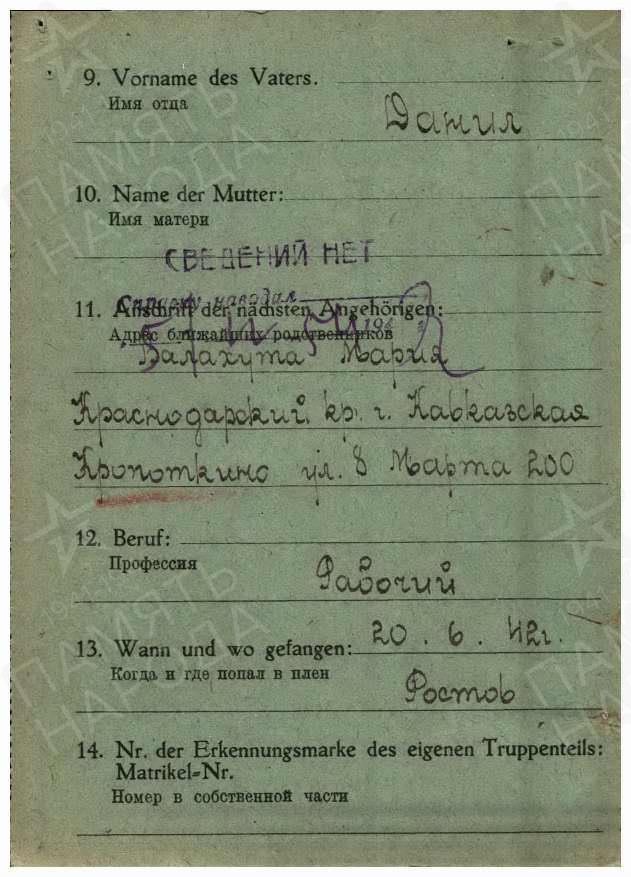 9. Vorname des Vaters.
Имя отца
Данил
10. Name der Mutter:
Имя матери
СВЕДЕНИЙ НЕТ
Справку наводил
11. Anschrift der nächsten Angehörigen:
196
Адрес ближайших родственников
Балахута Мария
Краснодарский кр. г. Кавказская
Кропоткино ул. 8 Марта 200
12. Beruf:
Профессия
Рабочий
13. Wann und wo gefangen: 20. 6. 42г.
Когда и где попал в плен
Ростов
14. Nr. der Erkennungsmarke des eigenen Truppenteils:
Matrikel=Nr.
Номер в собственной части
ПАМЯТЬ НАРОДА
ПАМЯТЬ НАРОДА